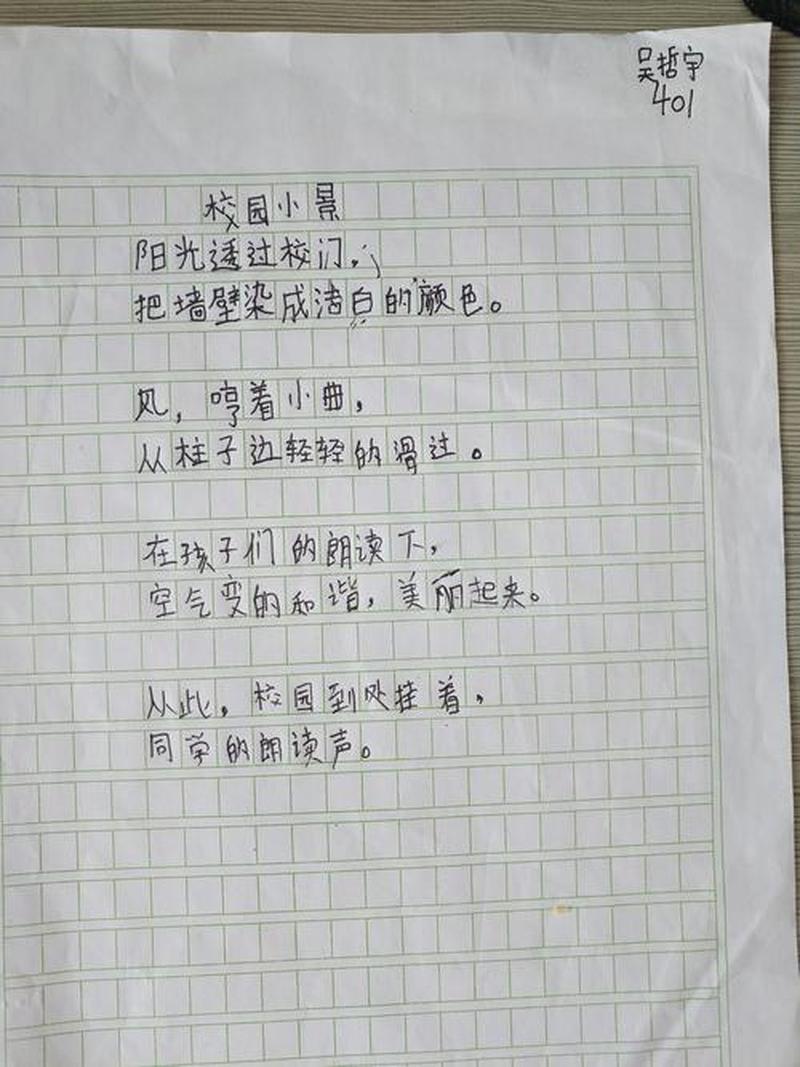 吴哲宇
401
校园小景
阳光透过校门，
把墙壁染成洁白的颜色。
风，哼着小曲，
从柱子边轻轻的滑过。
在孩子们的朗读下，
空气变的和谐，美丽起来。
从此，校园到处挂着，
同学的朗读声。